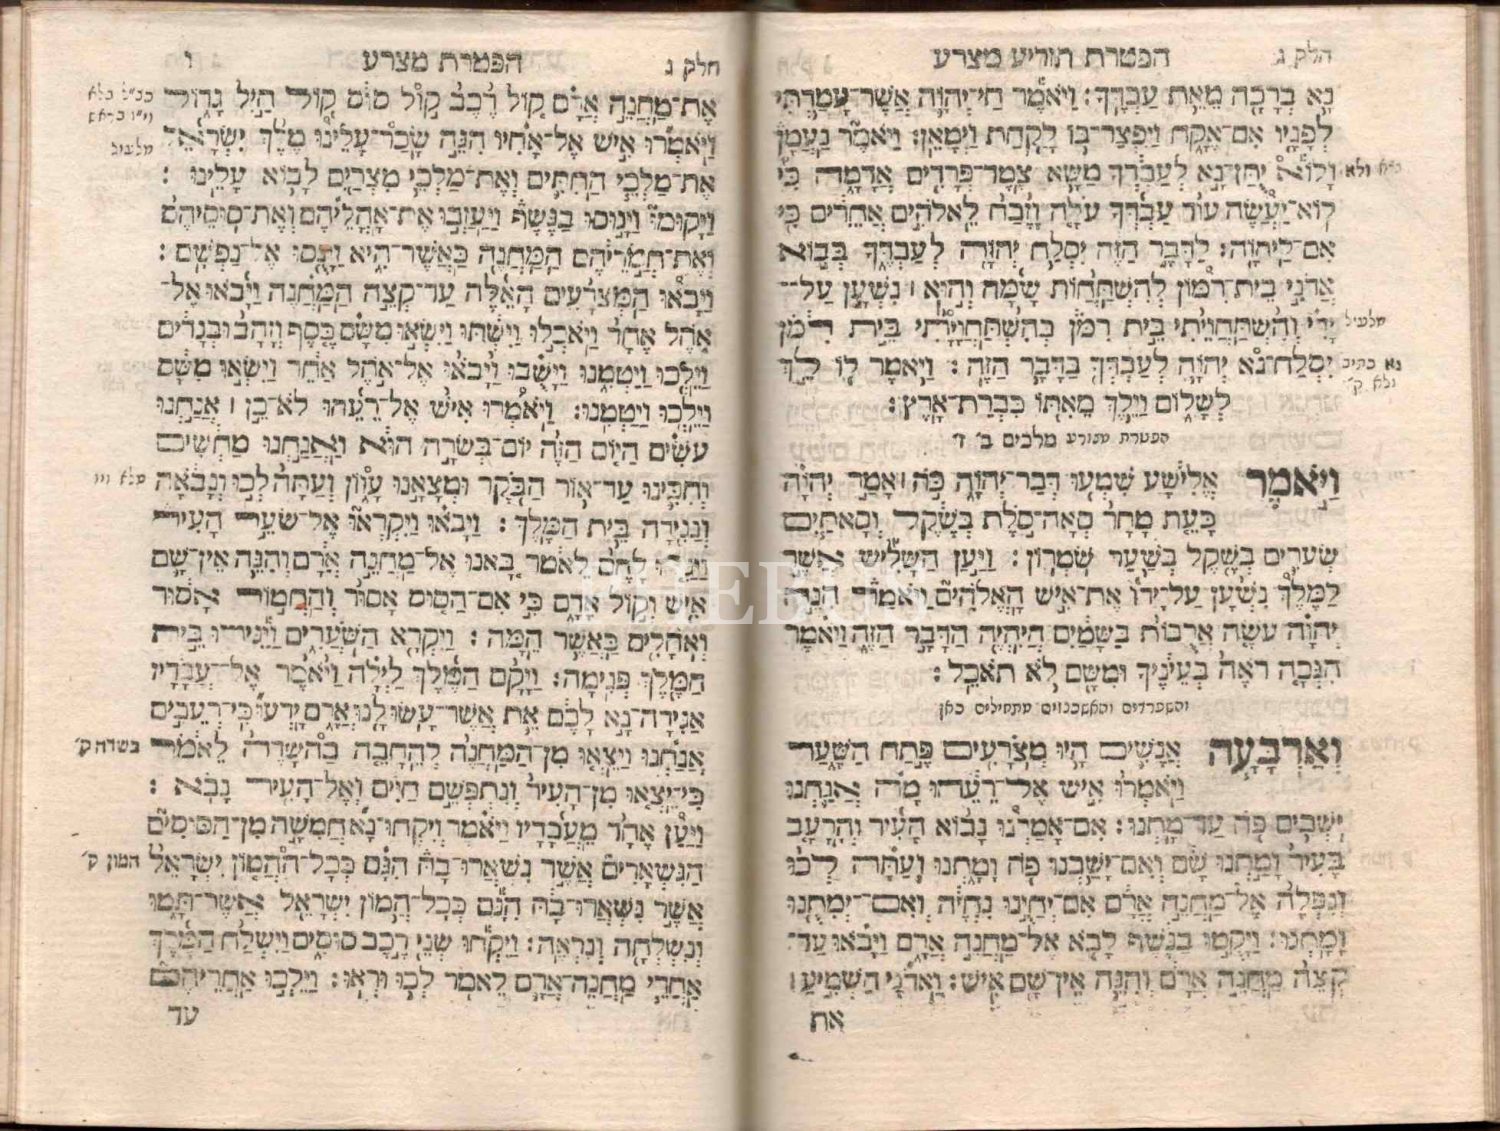 חלק ג הפטרת תזריע מצרע
נָא בְרָכָה מֵאֵת עַבְדֶּךָ: וַיֹּאמֶר חַי־יְהוָה אֲשֶׁר־עָמַדְתִּי
לְפָנָיו אִם־אֶקָּח וַיִּפְצַר־בּוֹ לָקַחַת וַיְמָאֵן: וַיֹּאמֶר נַעֲמָן
וָלֹא יֻתַּן־נָא לְעַבְדְּךָ מַשָּׂא צֶמֶד־פְּרָדִים אֲדָמָה כִּי
לוֹא־יַעֲשֶׂה עוֹד עַבְדְּךָ עֹלָה וָזֶבַח לֵאלֹהִים אֲחֵרִים כִּי
אִם־לַיהוָה: לַדָּבָר הַזֶּה יִסְלַח יְהוָה לְעַבְדֶּךָ בְּבוֹא
אֲדֹנִי בֵית־רִמּוֹן לְהִשְׁתַּחֲוֹת שָׁמָּה וְהוּא ׀ נִשְׁעָן עַל־
יָדִי וְהִשְׁתַּחֲוֵיתִי בֵּית רִמֹּן בְּהִשְׁתַּחֲוָיָתִי בֵּית רִמֹּן
יִסְלַח־נָא יְהוָה לְעַבְדְּךָ בַּדָּבָר הַזֶּה: וַיֹּאמֶר לוֹ לֵךְ
לְשָׁלוֹם וַיֵּלֶךְ מֵאִתּוֹ כִּבְרַת־אָרֶץ:
הפטרת מצורע מלכים ב׳ ז׳
וַיֹּאמֶר אֱלִישָׁע שִׁמְעוּ דְּבַר־יְהוָה כֹּה ׀ אָמַר יְהוָה
כָּעֵת מָחָר סְאָה־סֹלֶת בְּשֶׁקֶל וְסָאתַיִם
שְׂעֹרִים בְּשֶׁקֶל בְּשַׁעַר שֹׁמְרוֹן: וַיַּעַן הַשָּׁלִישׁ אֲשֶׁר
לַמֶּלֶךְ נִשְׁעָן עַל־יָדוֹ אֶת־אִישׁ הָאֱלֹהִים וַיֹּאמַר הִנֵּה
יְהוָה עֹשֶׂה אֲרֻבּוֹת בַּשָּׁמַיִם הֲיִהְיֶה הַדָּבָר הַזֶּה וַיֹּאמֶר
הִנְּכָה רֹאֶה בְּעֵינֶיךָ וּמִשָּׁם לֹא תֹאכֵל:
והספרדים והאשכנזים מתחילים כאן
וְאַרְבָּעָה אֲנָשִׁים הָיוּ מְצֹרָעִים פֶּתַח הַשָּׁעַר
וַיֹּאמְרוּ אִישׁ אֶל־רֵעֵהוּ מָה אֲנַחְנוּ
יֹשְׁבִים פֹּה עַד־מָתְנוּ: אִם־אָמַרְנוּ נָבוֹא הָעִיר וְהָרָעָב
בָּעִיר וָמַתְנוּ שָׁם וְאִם־יָשַׁבְנוּ פֹה וָמָתְנוּ וְעַתָּה לְכוּ
וְנִפְּלָה אֶל־מַחֲנֵה אֲרָם אִם־יְחַיֻּנוּ נִחְיֶה וְאִם־יְמִיתֻנוּ
וָמָתְנוּ: וַיָּקֻמוּ בַנֶּשֶׁף לָבֹא אֶל־מַחֲנֵה אֲרָם וַיָּבֹאוּ עַד־
קְצֵה מַחֲנֵה אֲרָם וְהִנֵּה אֵין־שָׁם אִישׁ: וַאדֹנָי הִשְׁמִיעַ ׀
את
נ״א ולא
מלעיל
נא כתיב
ולא ק׳
חלק ג הפטרת מצרע ו
אֶת־מַחֲנֵה אֲרָם קוֹל רֶכֶב קוֹל סוּס קוֹל חַיִל גָּדוֹל
וַיֹּאמְרוּ אִישׁ אֶל־אָחִיו הִנֵּה שָׂכַר־עָלֵינוּ מֶלֶךְ יִשְׂרָאֵל
אֶת־מַלְכֵי הַחִתִּים וְאֶת־מַלְכֵי מִצְרַיִם לָבוֹא עָלֵינוּ:
וַיָּקוּמוּ וַיָּנוּסוּ בַנֶּשֶׁף וַיַּעַזְבוּ אֶת־אָהֳלֵיהֶם וְאֶת־סוּסֵיהֶם
וְאֶת־חֲמֹרֵיהֶם הַמַּחֲנֶה כַּאֲשֶׁר־הִיא וַיָּנֻסוּ אֶל־נַפְשָׁם:
וַיָּבֹאוּ הַמְצֹרָעִים הָאֵלֶּה עַד־קְצֵה הַמַּחֲנֶה וַיָּבֹאוּ אֶל־
אֹהֶל אֶחָד וַיֹּאכְלוּ וַיִּשְׁתּוּ וַיִּשְׂאוּ מִשָּׁם כֶּסֶף וְזָהָב וּבְגָדִים
וַיֵּלְכוּ וַיַּטְמִנוּ וַיָּשֻׁבוּ וַיָּבֹאוּ אֶל־אֹהֶל אַחֵר וַיִּשְׂאוּ מִשָּׁם
וַיֵּלְכוּ וַיַּטְמִנוּ: וַיֹּאמְרוּ אִישׁ אֶל־רֵעֵהוּ לֹא־כֵן ׀ אֲנַחְנוּ
עֹשִׂים הַיּוֹם הַזֶּה יוֹם־בְּשֹׂרָה הוּא וַאֲנַחְנוּ מַחְשִׁים
וְחִכִּינוּ עַד־אוֹר הַבֹּקֶר וּמְצָאָנוּ עָוֹון וְעַתָּה לְכוּ וְנָבֹאָה
וְנַגִּידָה בֵּית הַמֶּלֶךְ: וַיָּבֹאוּ וַיִּקְרְאוּ אֶל־שֹׁעֵר הָעִיר
וַיַּגִּידוּ לָהֶם לֵאמֹר בָּאנוּ אֶל־מַחֲנֵה אֲרָם וְהִנֵּה אֵין־שָׁם
אִישׁ וְקוֹל אָדָם כִּי אִם־הַסּוּס אָסוּר וְהַחֲמוֹר אָסוּר
וְאֹהָלִים כַּאֲשֶׁר הֵמָּה: וַיִּקְרָא הַשֹּׁעֲרִים וַיַּגִּידוּ בֵּית
הַמֶּלֶךְ פְּנִימָה: וַיָּקָם הַמֶּלֶךְ לַיְלָה וַיֹּאמֶר אֶל־עֲבָדָיו
אַגִּידָה־נָּא לָכֶם אֵת אֲשֶׁר־עָשׂוּ לָנוּ אֲרָם יָדְעוּ כִּי־רְעֵבִים
אֲנַחְנוּ וַיֵּצְאוּ מִן־הַמַּחֲנֶה לְהֶחָבֵה בְהַשָּׂדֶה לֵאמֹר
כִּי־יֵצְאוּ מִן־הָעִיר וְנִתְפְּשֵׂם חַיִּים וְאֶל־הָעִיר נָבֹא:
וַיַּעַן אֶחָד מֵעֲבָדָיו וַיֹּאמֶר וְיִקְחוּ־נָא חֲמִשָּׁה מִן־הַסּוּסִים
הַנִּשְׁאָרִים אֲשֶׁר נִשְׁאֲרוּ בָהּ הִנָּם כְּכָל־הַהֲמוֹן יִשְׂרָאֵל
אֲשֶׁר נִשְׁאֲרוּ־בָהּ הִנָּם כְּכָל־הֲמוֹן יִשְׂרָאֵל אֲשֶׁר־תָּמּוּ
וְנִשְׁלְחָה וְנִרְאֶה: וַיִּקְחוּ שְׁנֵי רֶכֶב סוּסִים וַיִּשְׁלַח הַמֶּלֶךְ
אַחֲרֵי מַחֲנֵה־אֲרָם לֵאמֹר לְכוּ וּרְאוּ: וַיֵּלְכוּ אַחֲרֵיהֶם
עד
מלעיל
מלא ויו
בשדה ק׳
המון ק׳